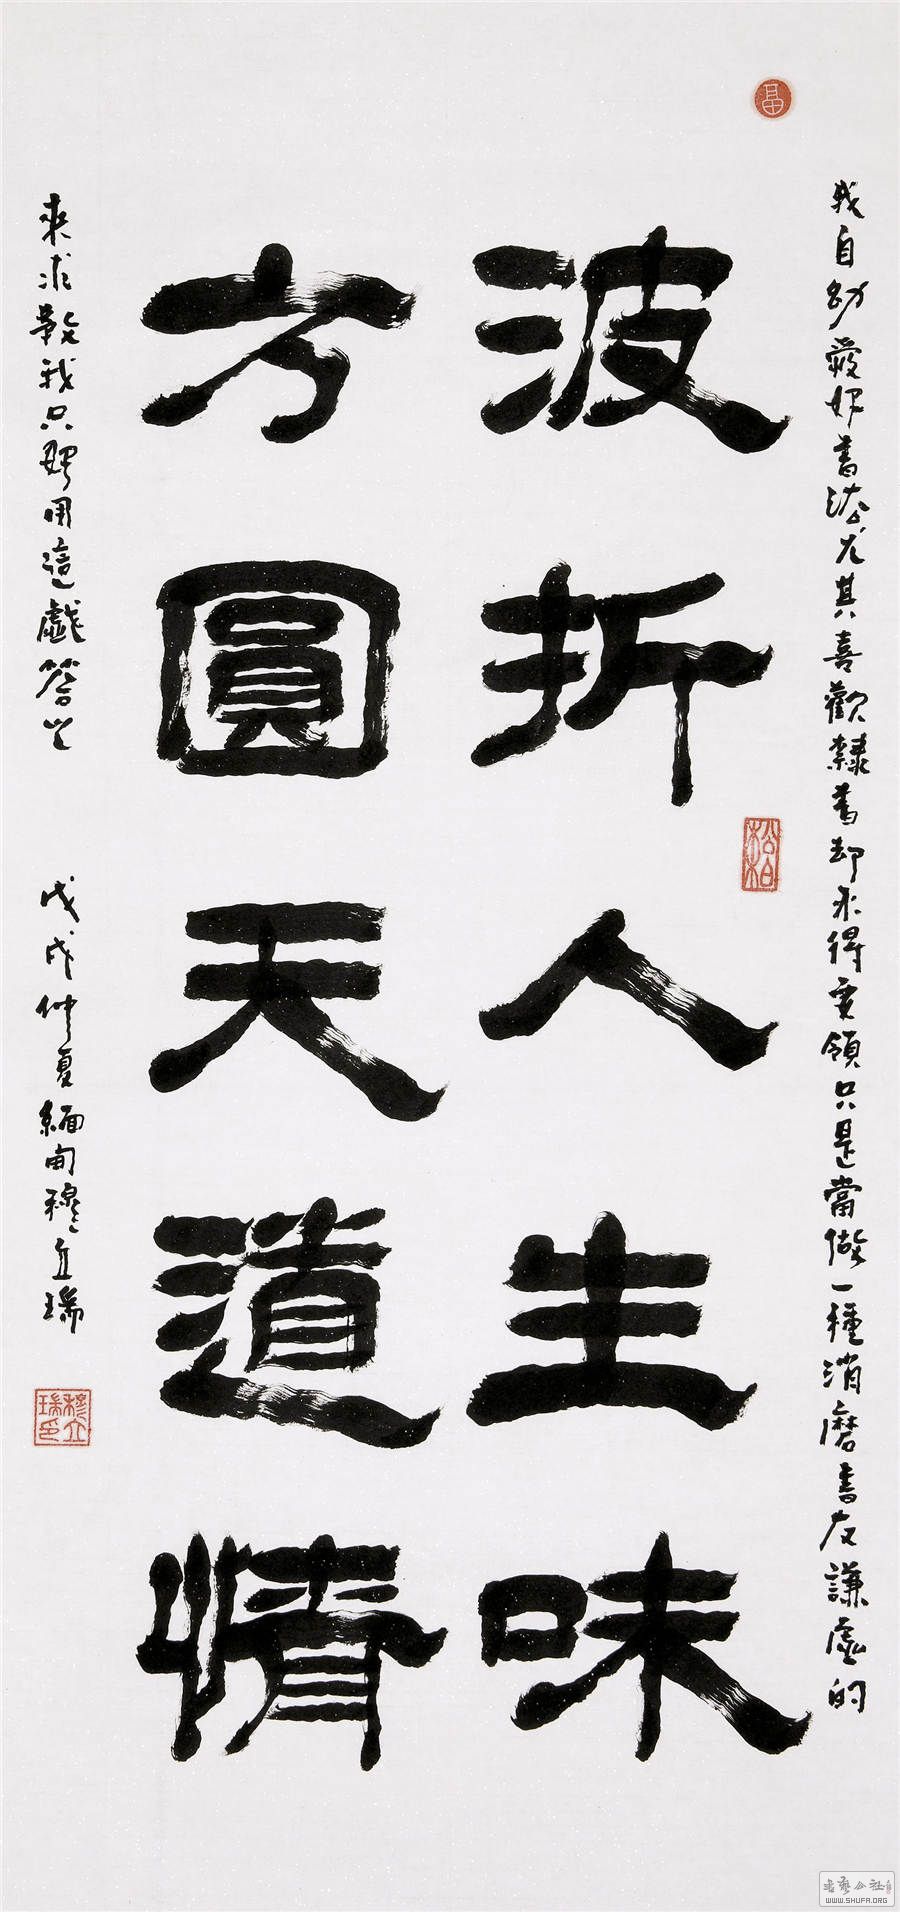 我自幼愛好書法尤其喜歡隸書却未得要領只是當做一種消磨書友謙虛的
波折人生味
方圓天道情
來求教我只能用這戲答之
戊戌仲夏緬甸穆立瑞
松柏
穆立瑞印
書藝公社
WWW.SHUFA.ORG